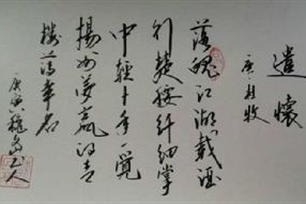 遣懷
唐 杜牧
落魄江湖載酒
行楚腰纤細掌
中輕十年一覺
揚州夢贏得青
樓薄幸名
庚寅